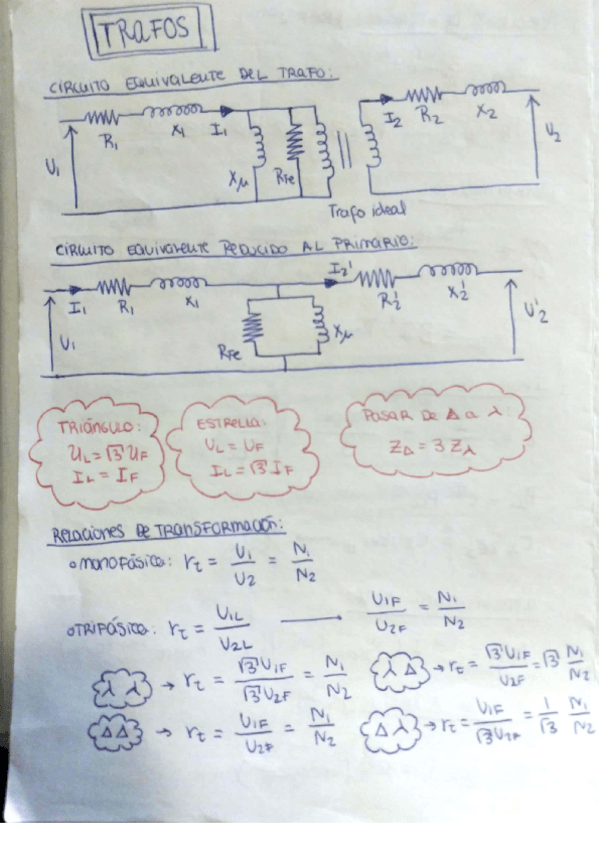 TRAFOS
CIRCUITO EQUIVALENTE DEL TRAFO:
R₁ X₁ I₁ I₂ R₂ X₂
U₁ Xμ RFe U₂
Trafo ideal
CIRCUITO EQUIVALENTE REDUCIDO AL PRIMARIO:
I₁ R₁ X₁ I₂' R₂' X₂'
U₁ RFe Xμ U'₂
TRIÁNGULO:
UL = √3 UF
IL = IF
ESTRELLA:
UL = UF
IL = √3 IF
PASAR DE Δ a λ:
ZΔ = 3 Zλ
RELACIONES DE TRANSFORMACIÓN:
o MONOFÁSICO: rt = U₁/U₂ = N₁/N₂
o TRIFÁSICO: rt = U1L/U2L ⟶ U1F/U2F = N₁/N₂
λ λ → rt = √3 U1F/√3 U2F = N₁/N₂
λ Δ → rt = √3 U1F/U2F = √3 N₁/N₂
Δ Δ → rt = U1F/U2F = N₁/N₂
Δ λ → rt = U1F/√3 U2F = 1/√3 N₁/N₂